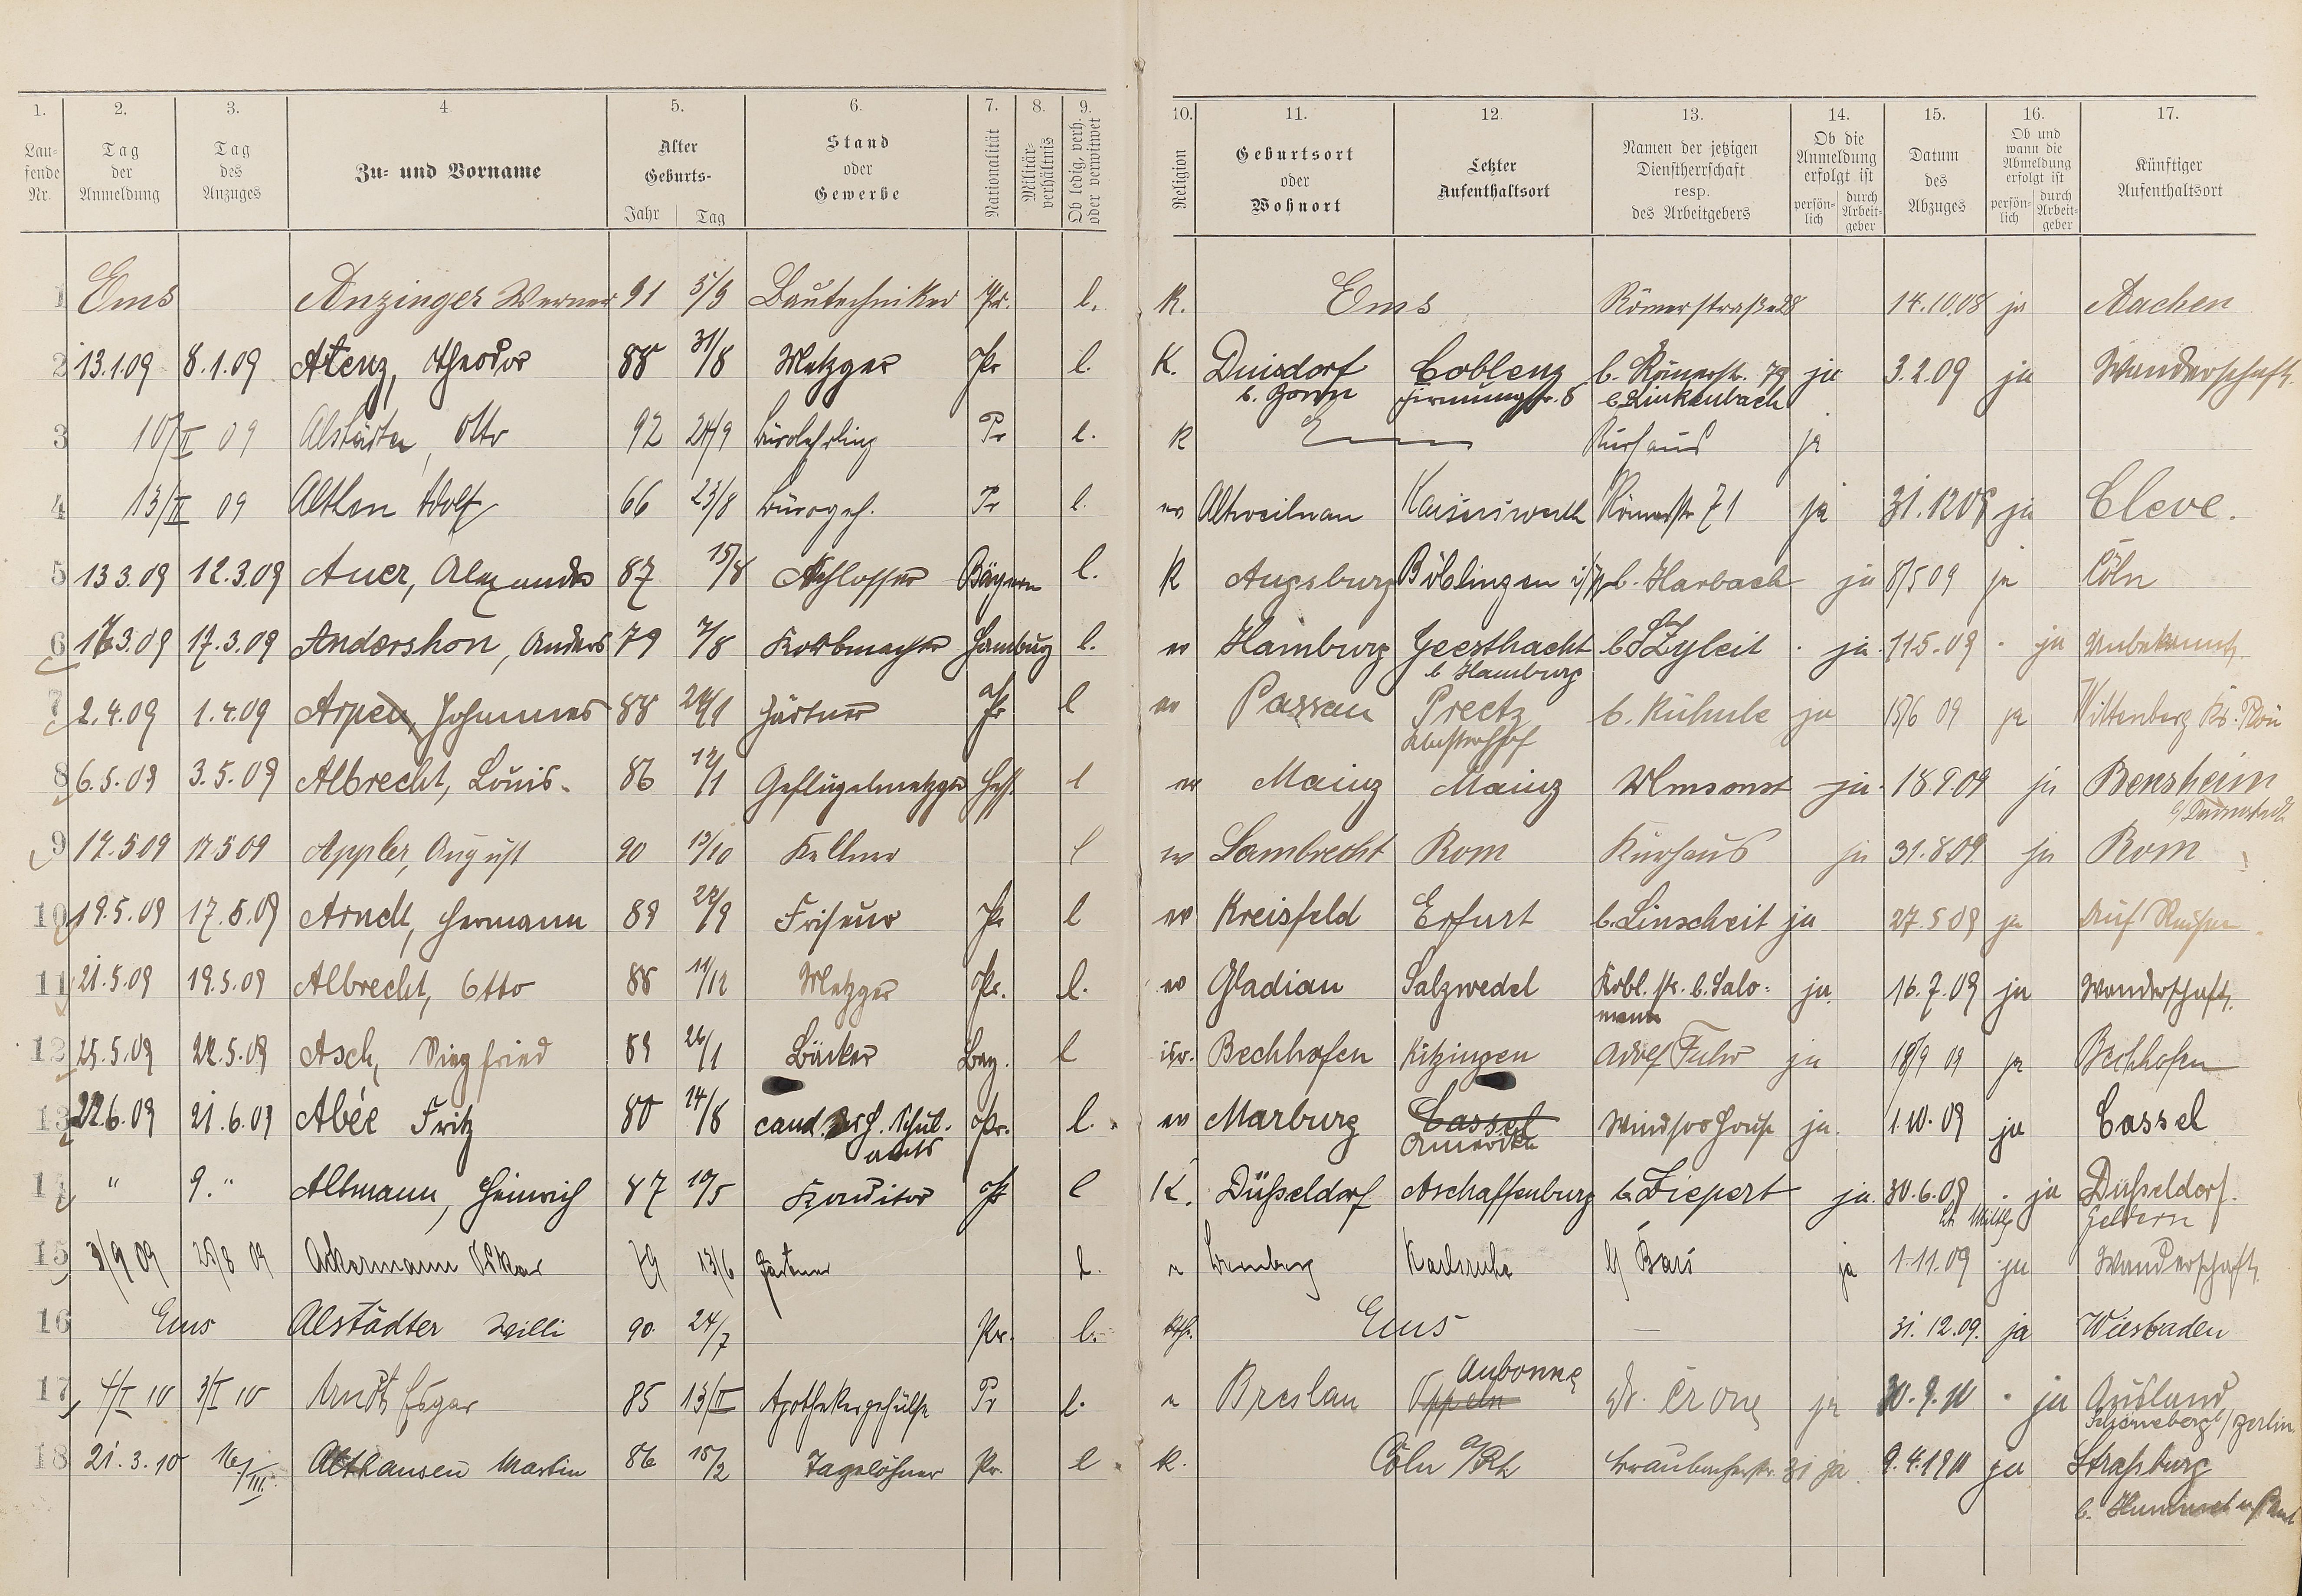 1. 2. 3. 4. 5. 6. 7. 8. 9. 10. 11. 12. 13. 14. 15. 16. 17.
Lau-
fende
Nr.
Tag
der
Anmeldung
Tag
des
Anzuges
Zu- und Vorname
Alter
Geburts-
Jahr Tag
Stand
oder
Gewerbe
Nationalität
Militär-
verhältnis
Ob ledig, verh.
oder verwitwet
Religion
Geburtsort
oder
Wohnort
Letzter
Aufenthaltsort
Namen der jetzigen
Dienstherrschaft
resp.
des Arbeitgebers
Ob die
Anmeldung
erfolgt ist
persön-
lich
durch
Arbeit-
geber
Datum
des
Abzuges
Ob und
wann die
Abmeldung
erfolgt ist
persön-
lich
durch
Arbeit-
geber
Künftiger
Aufenthaltsort
1 Ems Anzinger Werner 91 5/9 Bautechniker Pr. l. K. Ems Römerstraße 28 14.10.08 ja Aachen
2 13.1.09 8.1.09 Atenz, Theodor 88 31/8 Metzger Pr l. K. Duisdorf Coblenz b. Römerstr. 79 ja 3.2.09 ja Wanderschaft.
b. Bonn Firmungstr. b Linkenbach
3 10/II 09 Alstädter, Otto 92 24/9 Bürolehrling Pr l. K E Kurhaus ja
4 13/II 09 Althen Adolf 66 23/8 Bürogeh. Pr l. ev Altweilnau Kaiserswerth Römerstr 71 ja 31.12 09 ja Cleve.
5 13 3.09 12.3.09 Auer, Alexander 87 15/8 Schlosser Bayern l. K Augsburg Böblingen b. Harbach ja 8/5 09 ja Cöln
6 3.09 17.3.09 Andershon, Anders 79 7/8 Korbmacher Hamburg l. ev Hamburg Geesthacht b Zyleit ja. 11.5.09 ja Unbekannt
b Hamburg
7 2.4.09 1.4.09 Arpen, Johannes 88 24/1 Gärtner Pr l ev Passau Preetz b. Kühnle ja 15/6 09 ja Wittenberg Kr. Plön
Klosterhof
8 6.5.09 3.5.09 Albrecht, Louis. 86 12/1 Geflügelmetzger Hess. l ev Mainz Mainz ja. 18.9.09 ja Bensheim
b/Darmstadt
9 17.5 09 17 5 09 Appler, August 90 13/10 Kellner l ev Lambrecht Rom Kurhaus ja 31.8.09 ja Rom
10 19.5.09 17.5.09 Arndt, Hermann 89 22/9 Friseur Pr l ev Kreisfeld Erfurt b. Linscheit ja 27.5 09 ja Auf Reisen
11 21.5.09 19.5.09 Albrecht, Otto 88 11/12 Metzger Pr. l. ev Gladiau Salzwedel Kobl. str. b. Salo- ja 16.7.09 ja Wanderschaft.
mann
12 25.5.09 22.5.09 Asch, Siegfried 89 26/1 Bäcker Bay. l isr. Bechhofen Kitzingen Adolf Fuhr ja 18/9 09 ja Bechhofen
13 22.6.09 21.6.09 Abée Fritz 80 14/8 cand. Schul- Pr. l. ev Marburg Cassel Windsor House ja. 1.10.09 ja Cassel
amts
14 " 9. " Altmann, Heinrich 87 10/5 Konditor Pr l K. Düsseldorf Aschaffenburg b. Ziepert ja. 30.6.09 ja Düsseldorf.
Geldern
15 3/9 09 25/8 09 Ackermann Oskar 79 13/6 Gärtner l. Karlsruhe ja 1.11.09 ja Wanderschaft.
16 Ems Alstädter Willi 90 24/7 Pr. l. kth. Ems — 31.12.09. ja Wiesbaden
17 4/I 10 3/I 10 Arndt Edgar 85 13/II Apothekergehülfe Pr l. Breslau Oppeln Aubonne Dr. Crone ja 30.9.10 ja Ausland
Schöneberg b/Berlin
18 21.3.10 16/III. Althausen Martin 86 15/2 Tagelöhner Pr. l K. Cöln a/Rh Braubacherstr. 31 ja 9.4.1910 ja Straßburg